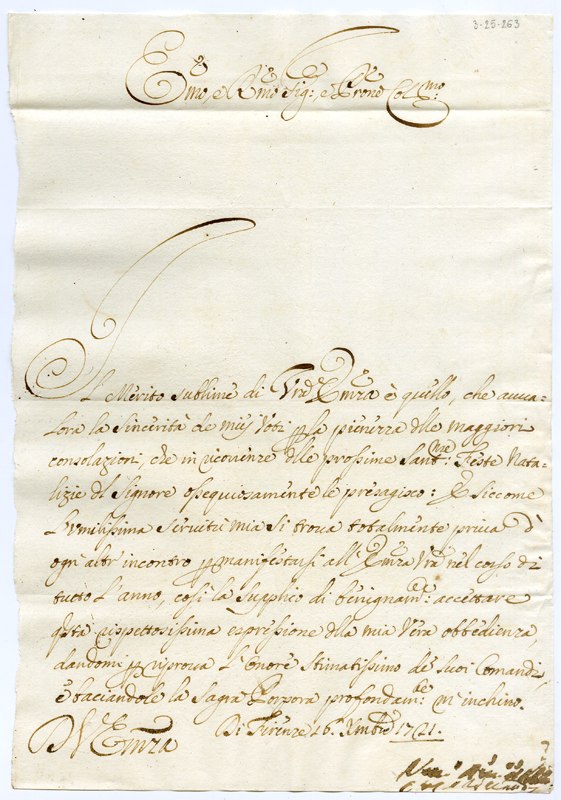 3-25-263
Emo, e Rmo Sig:, e Prone Col:mo
Il Merito sublime di Vra Emza è quello, che avva-
lora la Sincerità de miej Voti p la pienezza dlle maggiori
consolazioni, che in ricorrenze dlle prossime Santme: Feste Nata-
lizie dl Signore ossequiosamente le presagisco: E Siccome
L'umilissima Servitù mia Si trova totalmente priva d'
ogn'altr'incontro p manifestarsi all'Emza Vra nel corso di
tutto L'anno, così la Supplico di benignamte: accettare
qsta rispettosissima espressione dlla mia Vera obbedienza,
dandomi p riprova L'Onore Stimatissimo de Suoi Comandi,
e baciandole la Sagra Porpora profondamte: m'inchino.
Di Firenze 16. Xmbre 1721.
D V Emza